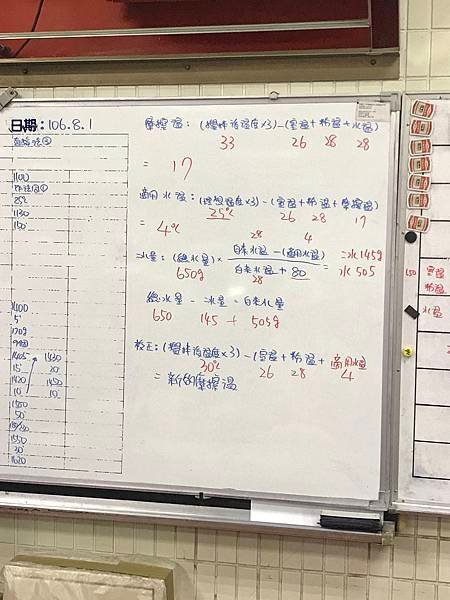 日期：106.8.1
摩擦溫：(攪拌後溫度×3)−(室溫+粉溫+水溫)
33 26 28 28
= 17
適用水溫：(理想溫度×3)−(室溫+粉溫+摩擦溫)
25℃ 26 28 17
= 4℃
28 4
冰量：(總水量)× 自來水溫−(適用水溫) / 自來水溫+80 = 冰145g
650g 28 = 水505
總水量 − 冰量 = 自來水量
650 145 505g
校正：(攪拌後溫度×3)−(室溫+粉溫+適用水溫)
30℃ 26 28 4
= 新的摩擦溫
1100
25℃
1130
150
1400
5'
170g
1405 1430
15' 20
1420 1450
10 10
1500
50
1550
30
1620
150
室溫
粉溫
水溫